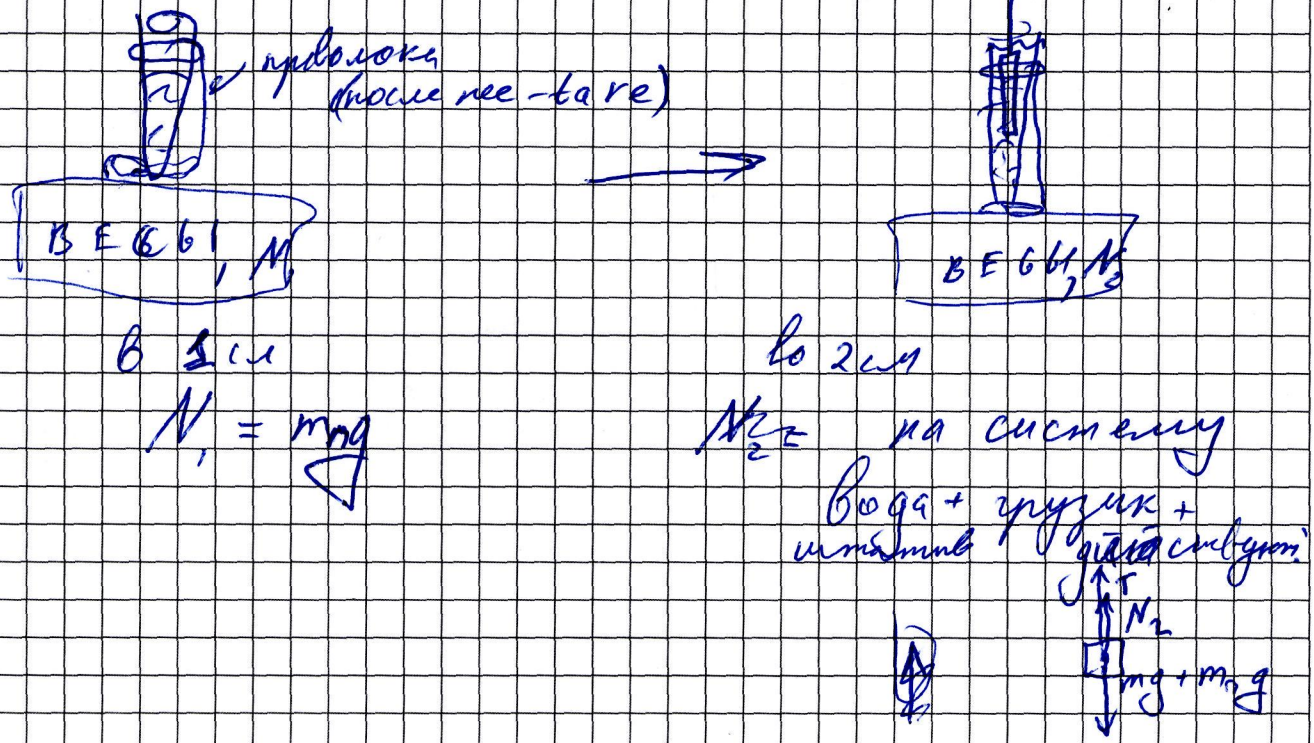 проволока
(после нее - tare)
ВЕСЫ, N₁
ВЕСЫ, N₂
в 1 сл
N₁ = mₙg
во 2 сл
N₂ = на систему
вода + грузик +
штатив действуют:
T
N₂
mg + mₙg